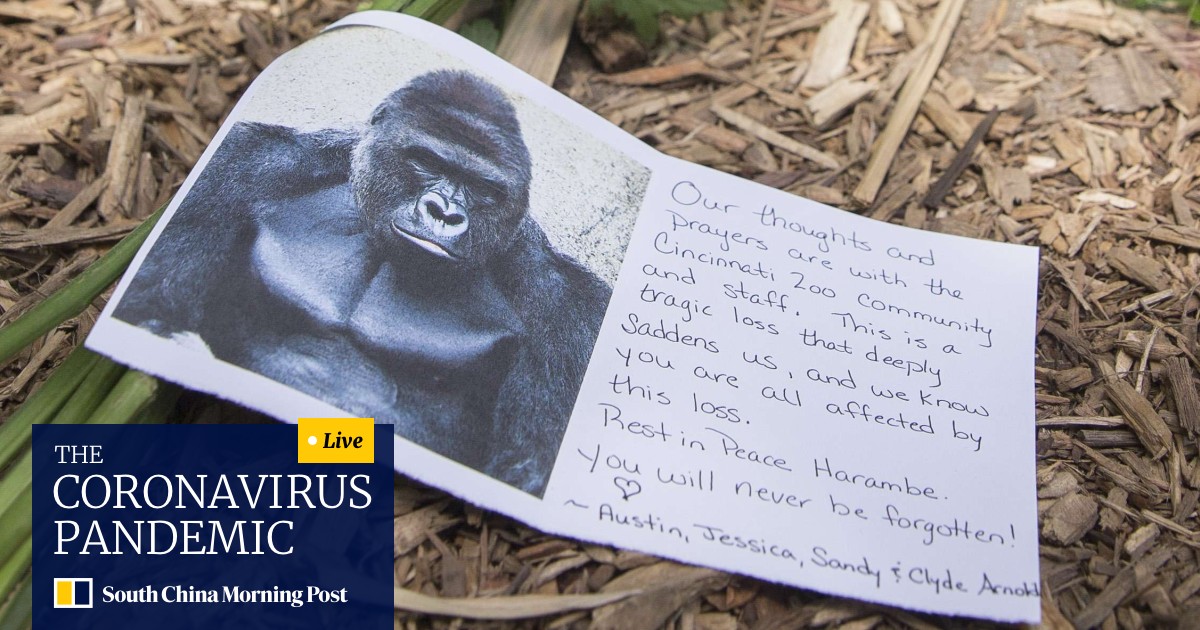 Our thoughts and
prayers are with the
Cincinnati Zoo community
and staff. This is a
tragic loss that deeply
saddens us, and we know
you are all affected by
this loss.
Rest in Peace Harambe.
You will never be forgotten!
♡
~ Austin, Jessica, Sandy & Clyde Arnold
Live
THE
CORONAVIRUS
PANDEMIC
South China Morning Post